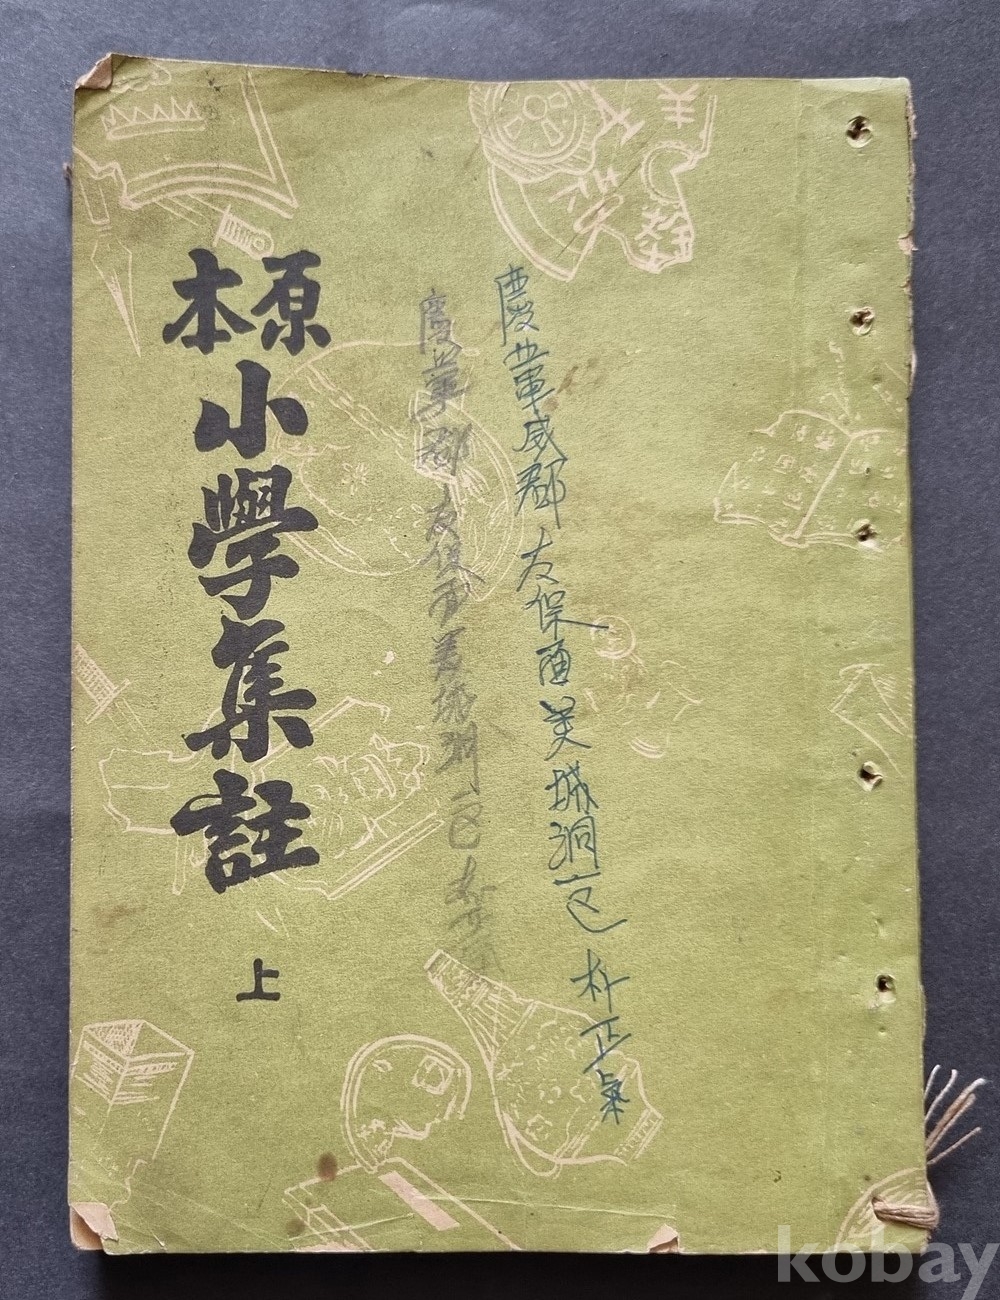 慶北軍威郡 友保面美城洞 朴正
慶北軍郡 友保面美城洞
原本
小學集註 上
kobay